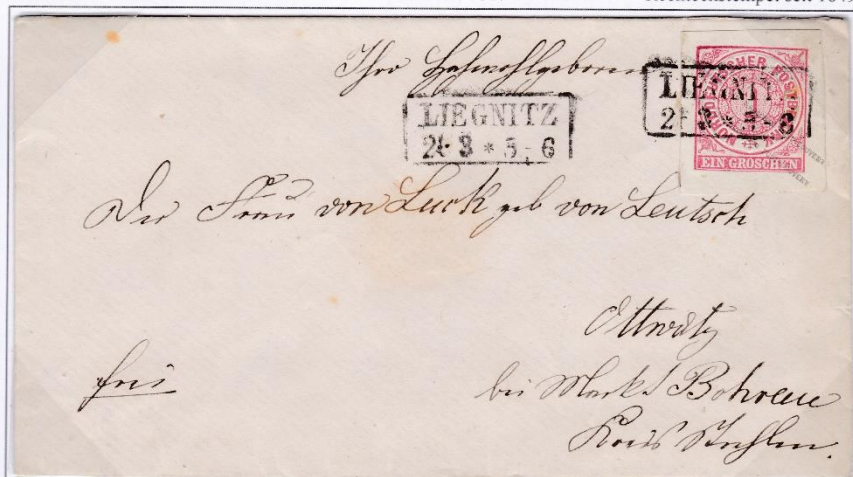 Ihro Hochwohlgeboren
LIEGNITZ
2 3 * 5-6
LIEGNITZ
2 3 * 5-6
NORDDEUTSCHER POSTBEZIRK
1
EIN GROSCHEN
Der Frau von Luck geb von Leutsch
Ottwitz
frei
bei Markt Bohrau
Kreis Strehlen.